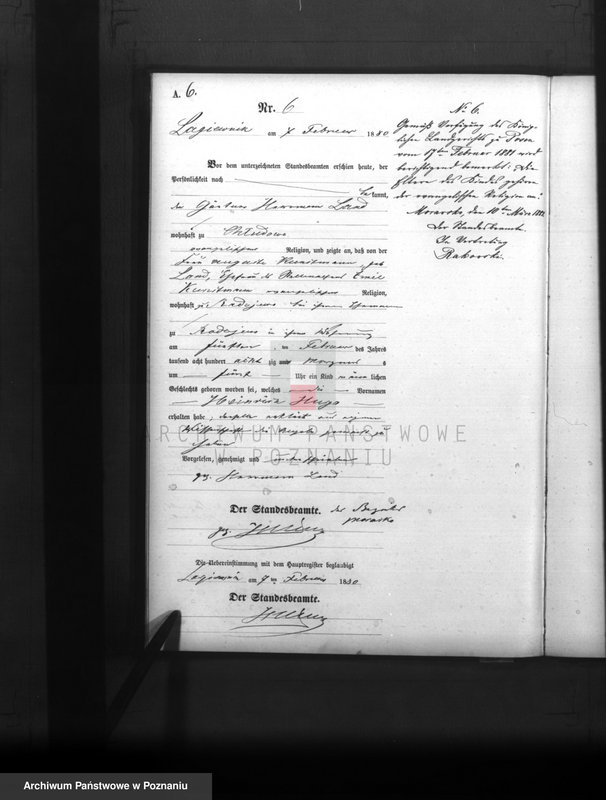 A. 6.
Nr. 6
Lagiewnik am 7 Februar 1880
Vor dem unterzeichneten Standesbeamten erschien heute, der
Persönlichkeit nach
bekannt,
der Gärtner Herrmann Land
wohnhaft zu Chludowo
evangelischer Religion, und zeigte an, daß von der
Frau Auguste geb
Land, Ehefrau des Emil
evangelischer Religion,
wohnhaft zu Radojewo bei ihrem Ehemann
zu Radojewo in ihrer Wohnung
am fünften Februar des Jahres
tausend acht hundert achtzig und Morgens
um fünf Uhr ein Kind männlichen
Geschlechts geboren worden sei, welches die Vornamen
Heinrich Hugo
erhalten habe, derselbe erklärt aus eigener
Wissenschaft die Angabe gemacht zu
haben
Vorgelesen, genehmigt und unterschrieben
gz. Herrmann Land
Der Standesbeamte. des Bezirks
Morasko
gz.
Die Uebereinstimmung mit dem Hauptregister beglaubigt
am 7ten Februar 1880
Der Standesbeamte.
No 6.
Gemäß Verfügung des König-
lichen Landgerichts zu Posen
vom 17ten Februar 1881 wird
berichtigend bemerkt: die
Eltern des Kindes gehören
der evangelischen Religion an.
Morasko, den 10ten März 1882
Der Standesbeamte.
In Vertretung
ARCHIWUM PAŃSTWOWE
W POZNANIU
Archiwum Państwowe w Poznaniu